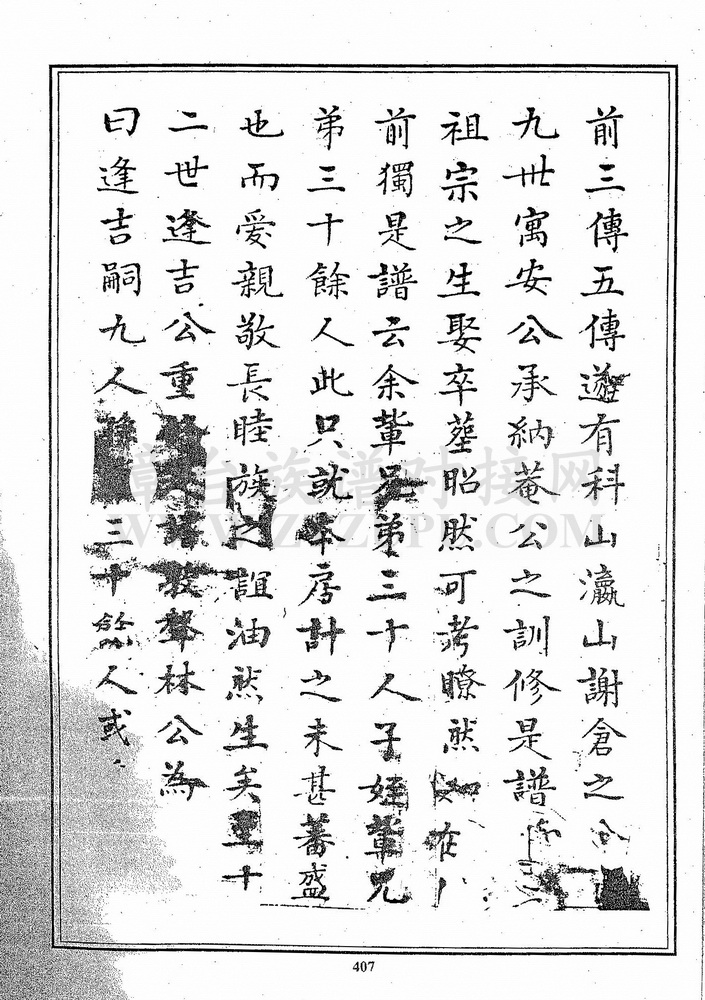 前三傳五傳遂有科山瀛山謝倉之
九卅寓安公承納菴公之訓修是譜
祖宗之生娶卒塟昭然可考瞭然如在
前獨是譜云余輩兄弟三十人子姪輩兄
弟三十餘人此只就本房計之未甚蕃盛
也而爱親敬長睦族之誼油然生矣至十
二世逢吉公重 聲林公為
曰逢吉嗣九人 三十餘人或
407
章台族谱对接网
WWW.ZTZUPU.COM